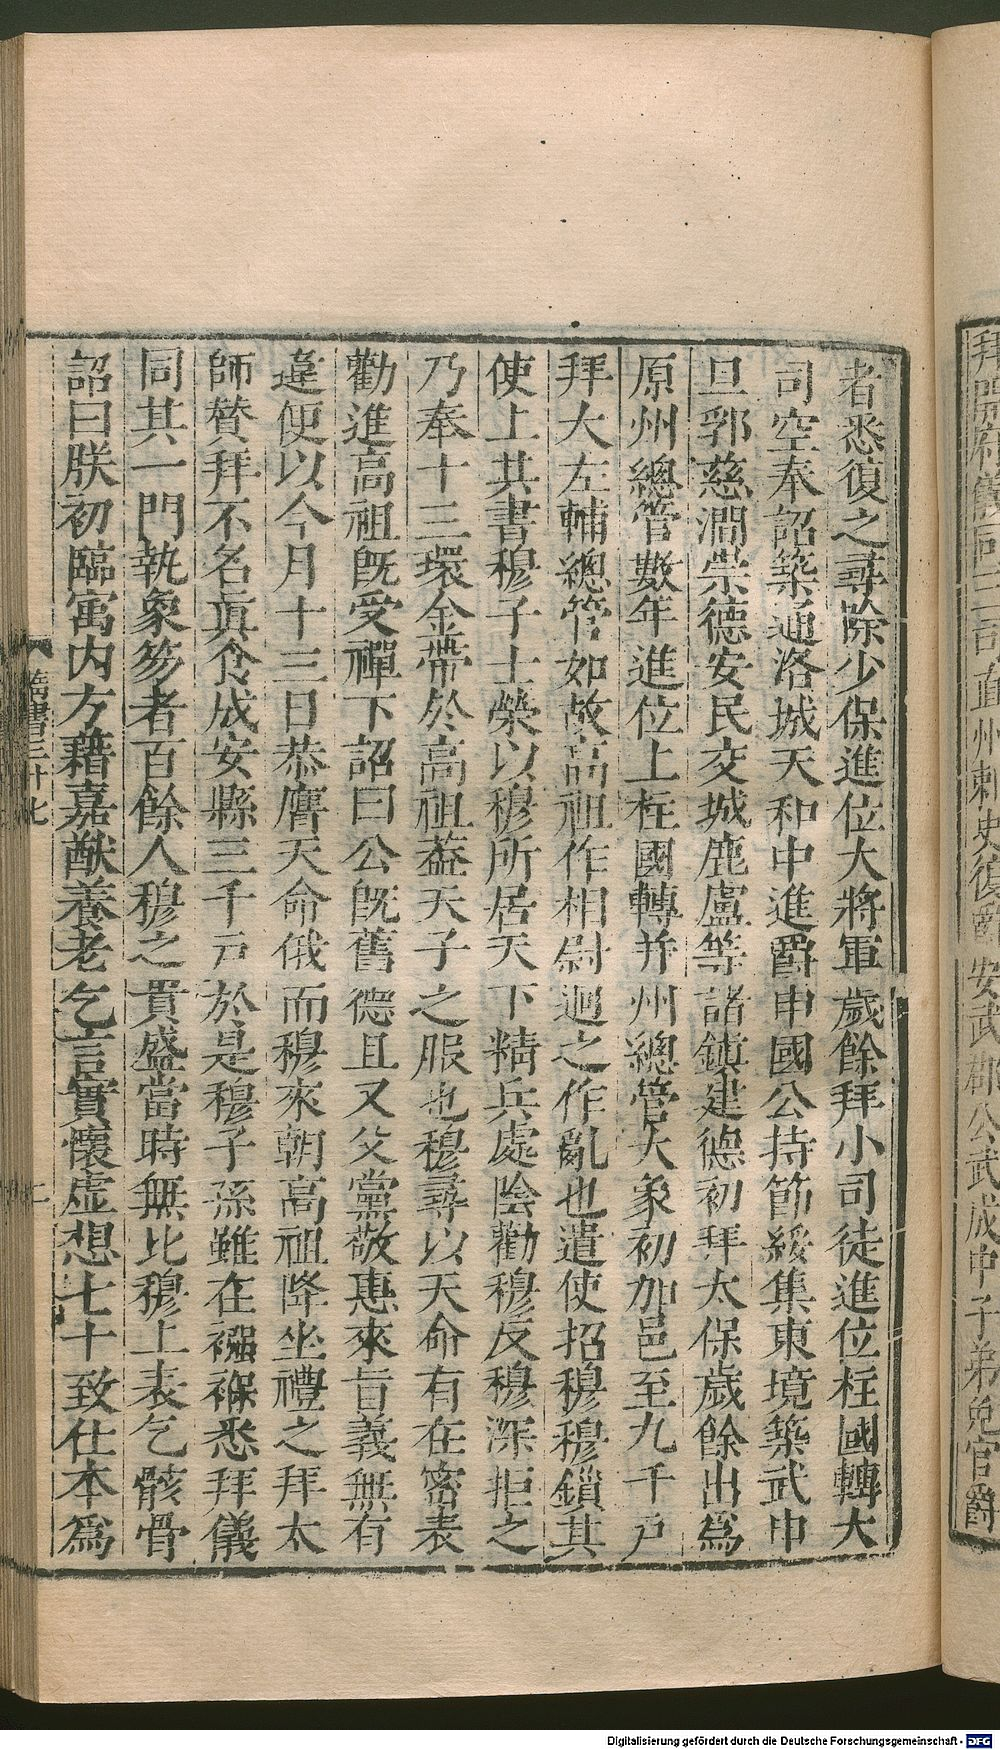 拜開府儀同三司直州刺史復爵安武郡公武成中子弟免官爵
者悉復之尋除少保進位大將軍歲餘拜小司徒進位柱國轉大
司空奉詔築通洛城天和中進爵申國公持節綏集東境築武申
旦郛慈澗崇德安民交城鹿盧等諸鎮建德初拜太保歲餘出爲
原州總管數年進位上柱國轉并州總管大象初加邑至九千戶
拜大左輔總管如故高祖作相尉迥之作亂也遣使招穆穆鎖其
使上其書穆子士榮以穆所居天下精兵處陰勸穆反穆深拒之
乃奉十三環金帶於高祖葢天子之服也穆尋以天命有在密表
勸進高祖旣受禪下詔曰公旣舊德且又父黨敬惠來旨義無有
違便以今月十三日恭膺天命俄而穆來朝高祖降坐禮之拜太
師贊拜不名眞食成安縣三千戸於是穆子孫雖在襁褓悉拜儀
同其一門執象笏者百餘人穆之貴盛當時無比穆上表乞骸骨
詔曰朕初臨㝢內方藉嘉猷養老乞言實懷虛想七十致仕本爲
隋書三十七
二
Digitalisierung gefördert durch die Deutsche Forschungsgemeinschaft - DFG